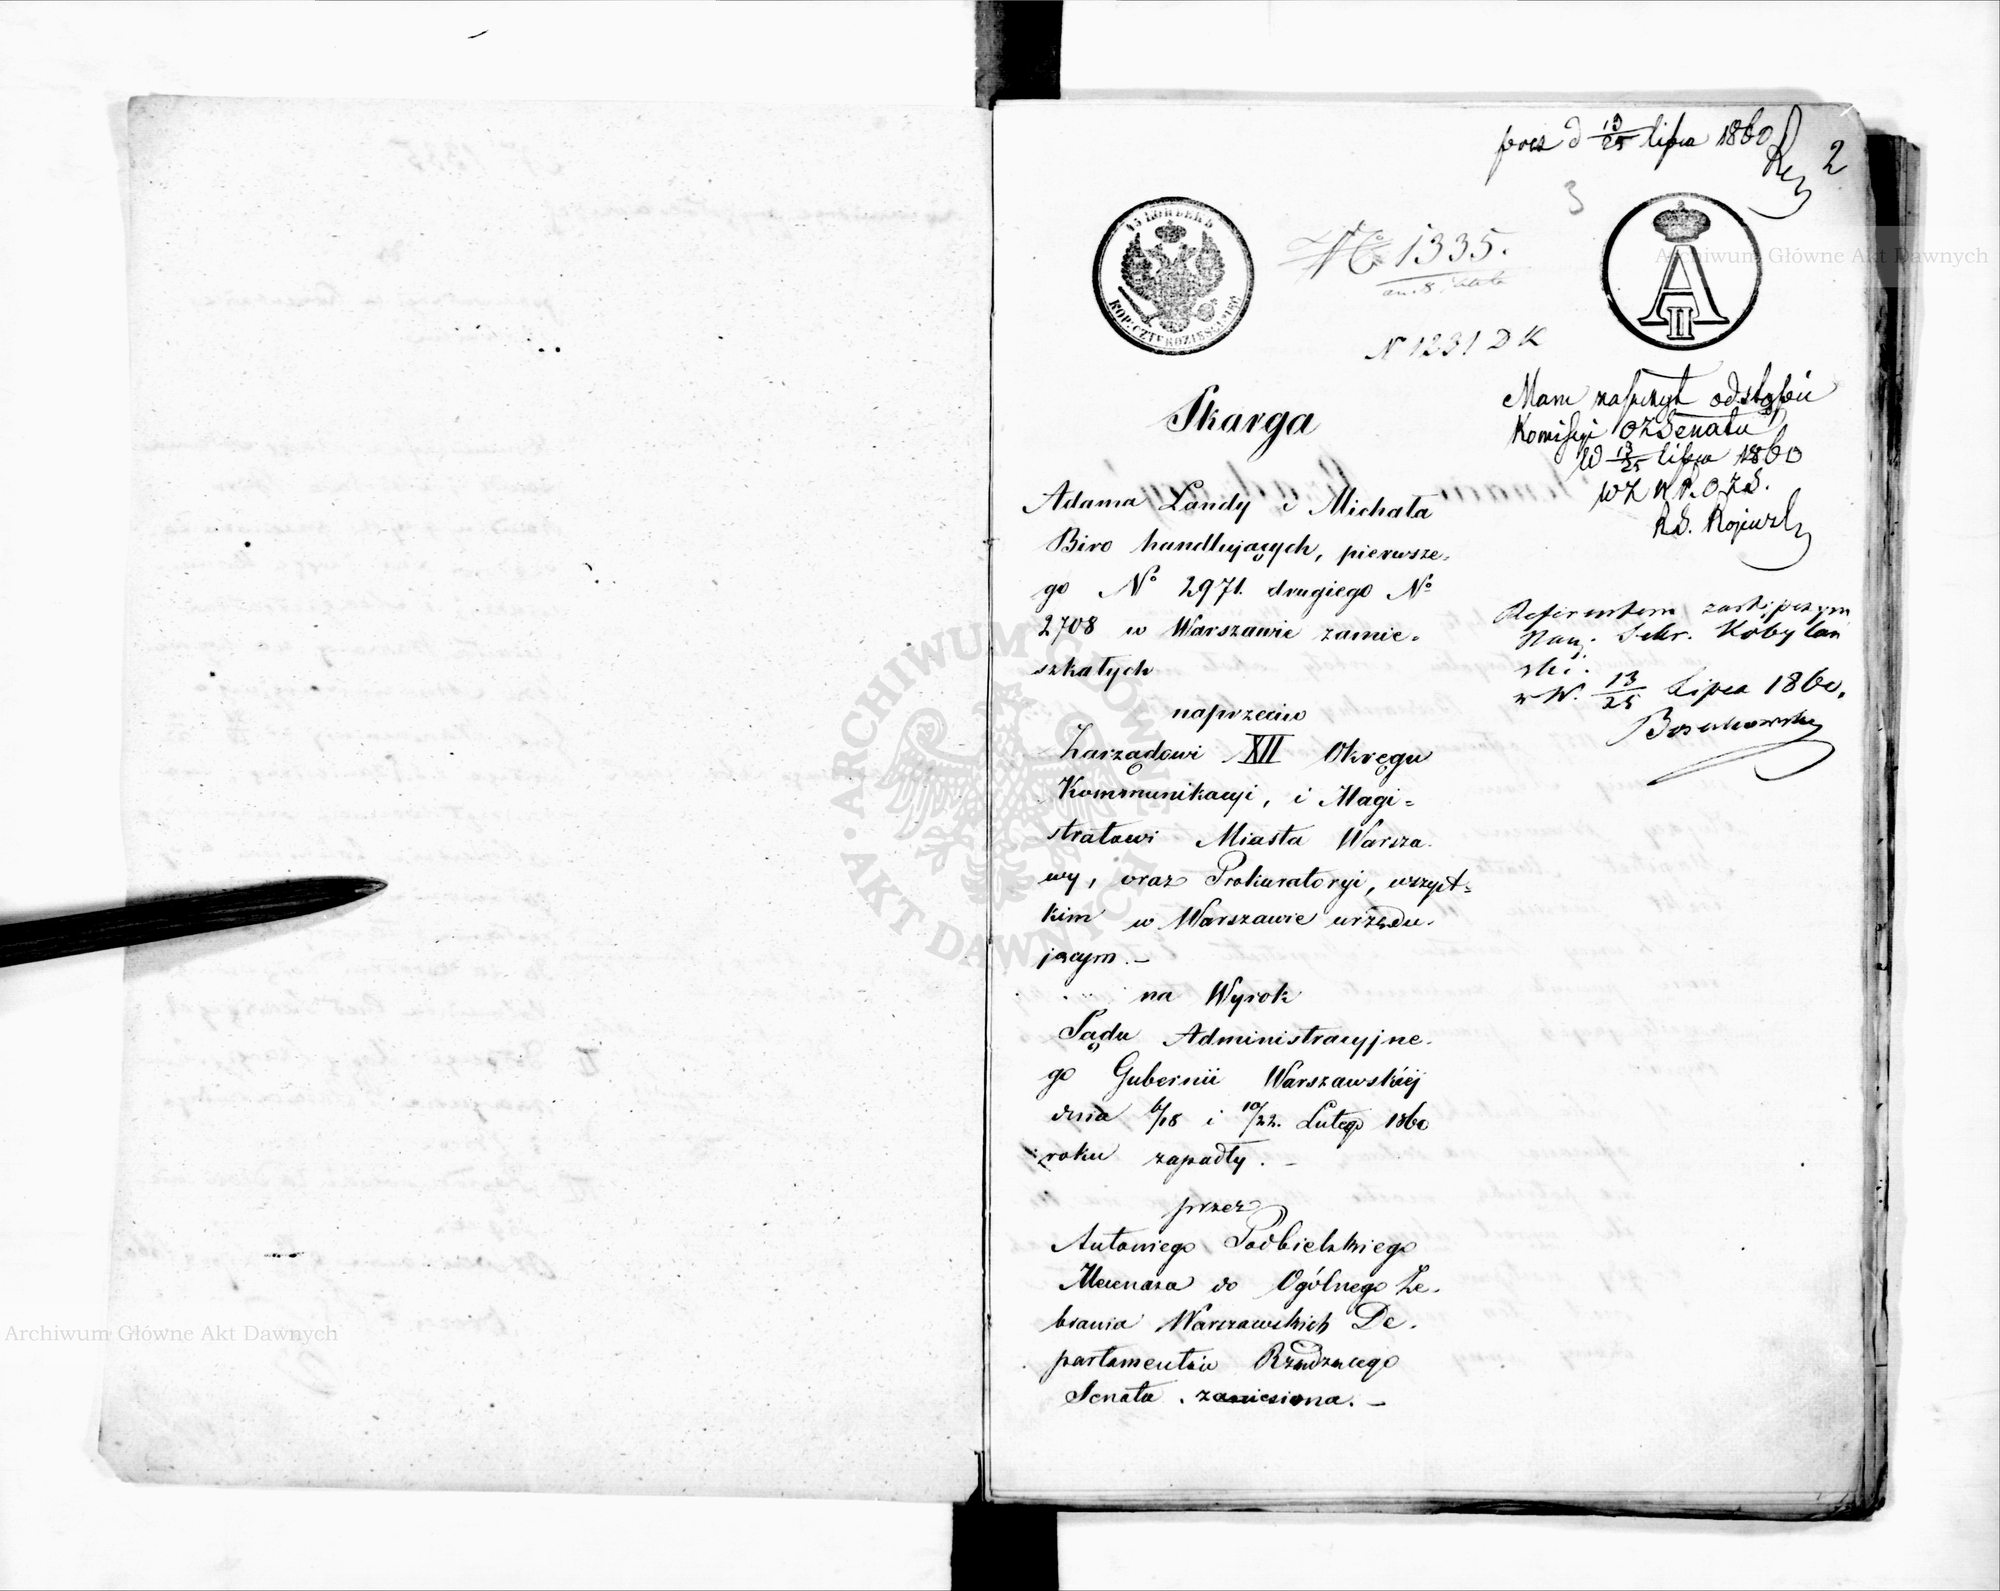 d 13/25 lipca 1860
2
3
45 КОПѢЕКЪ
KOP: CZTERDZIEŚCI PIĘĆ
№ 1335.
A II
N 1231 D K
Skarga
Mam zaszczyt odstąpić
Komissyi OZ Senatu
W 13/25 lipca 1860
Adama Landy i Michała
Biro handlujących, pierwsze-
go No 2971. drugiego No
2708 w Warszawie zamie-
szkałych
naprzeciw
Zarządowi XII Okręgu
Kommunikacyi, i Magi-
stratowi Miasta Warsza-
wy, oraz Prokuratoryi, wszyst-
kim w Warszawie urzędu-
jącym. –
na Wyrok
Sądu Administracyjne-
go Gubernii Warszawskiéj
dnia 6/18 i 10/22. Lutego 1860
roku zapadły. –
przez
Antoniego Podbielskiego
Mecenasa do Ogólnego Ze-
brania Warszawskich De-
partamentów Rządzącego
Senatu. zaniesiona. –
Referentem zastępczym
Nacz. Sekr. Kobylań
ski.
w W. 13/25 Lipca 1860.
Archiwum Główne Akt Dawnych
ARCHIWUM GŁÓWNE AKT DAWNYCH
Archiwum Główne Akt Dawnych